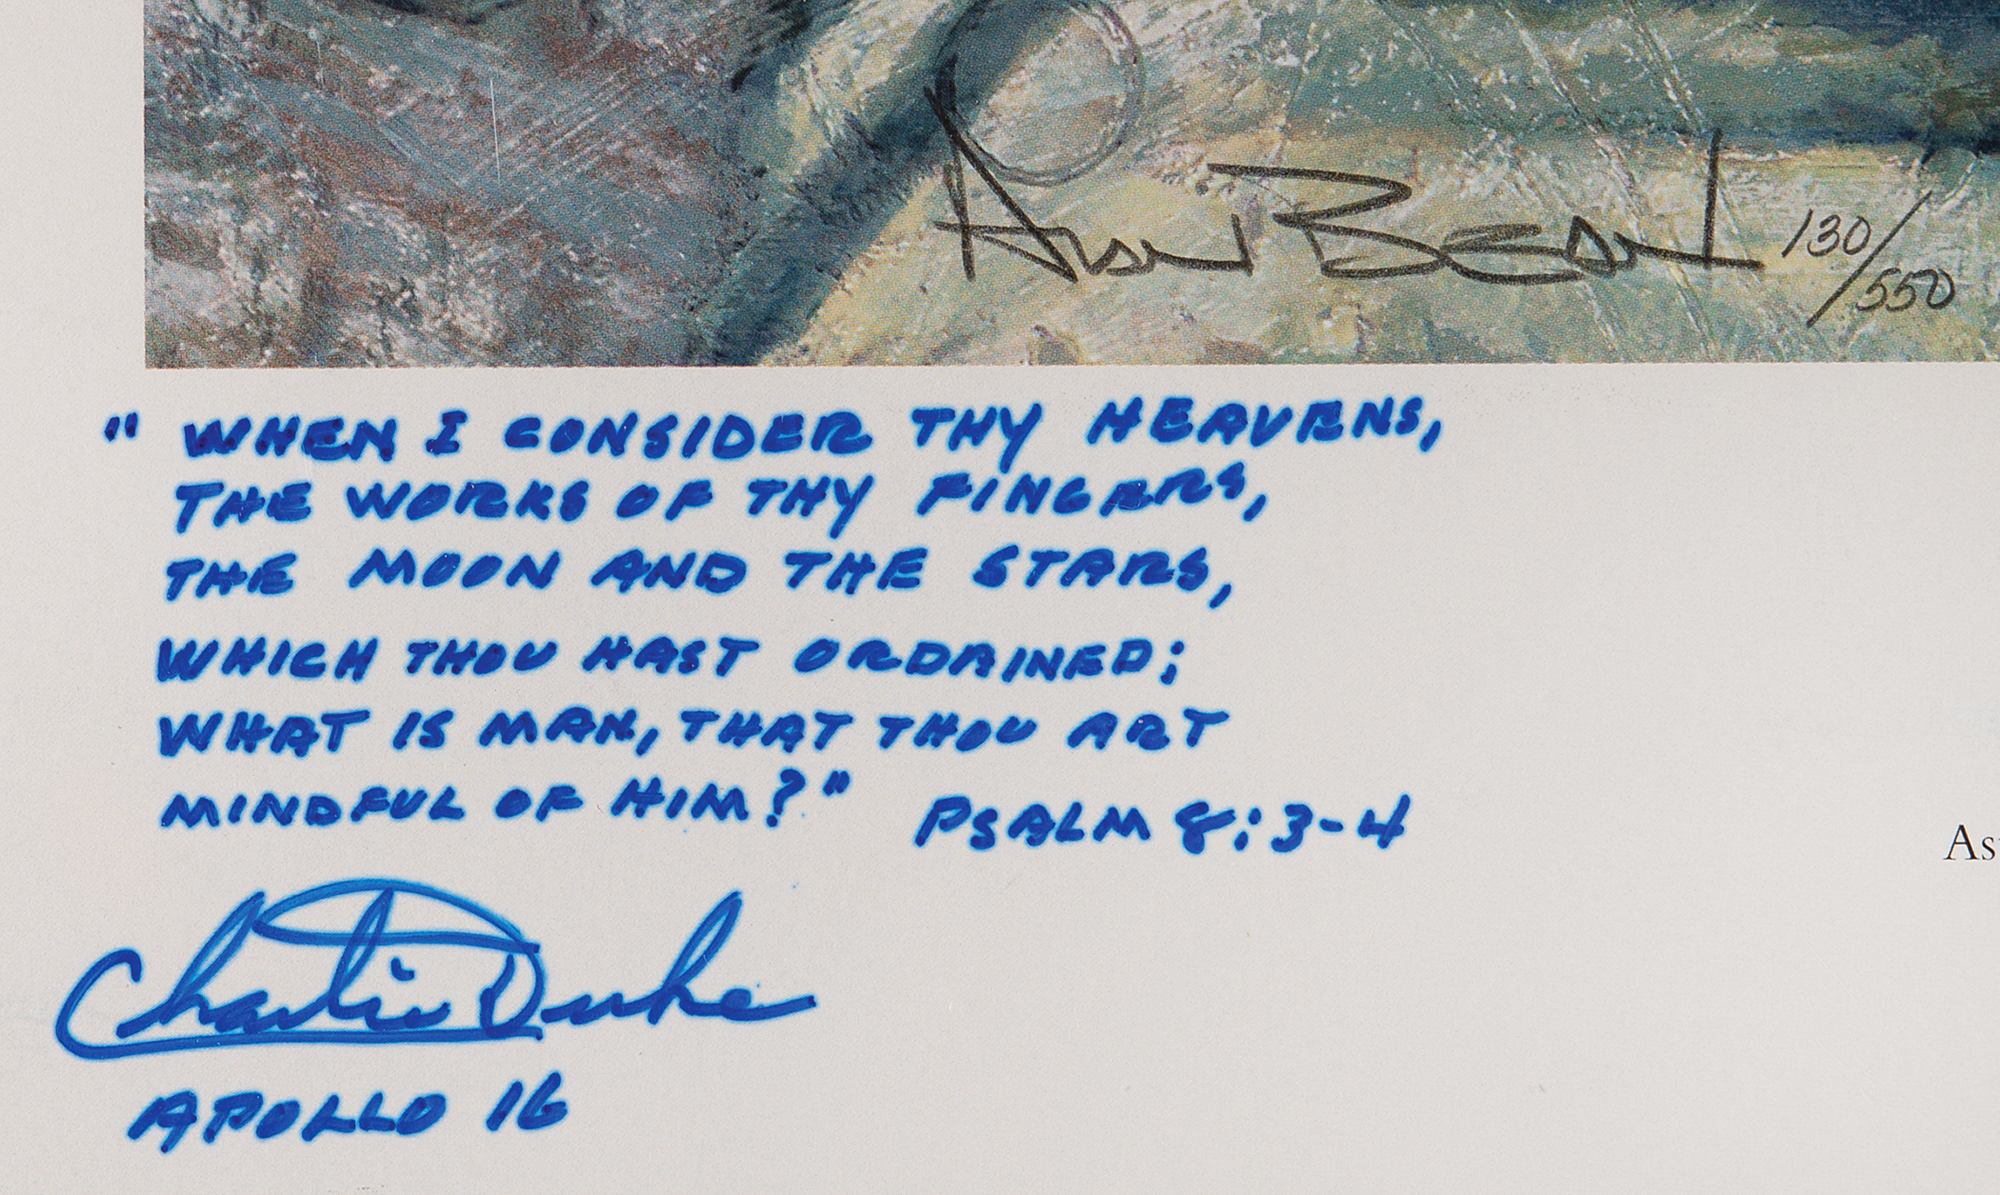 Alan Bean 130/550
" WHEN I CONSIDER THY HEAVENS,
THE WORKS OF THY FINGERS,
THE MOON AND THE STARS,
WHICH THOU HAST ORDAINED;
WHAT IS MAN, THAT THOU ART
MINDFUL OF HIM?" PSALM 8:3-4
As
Charlie Duke
APOLLO 16